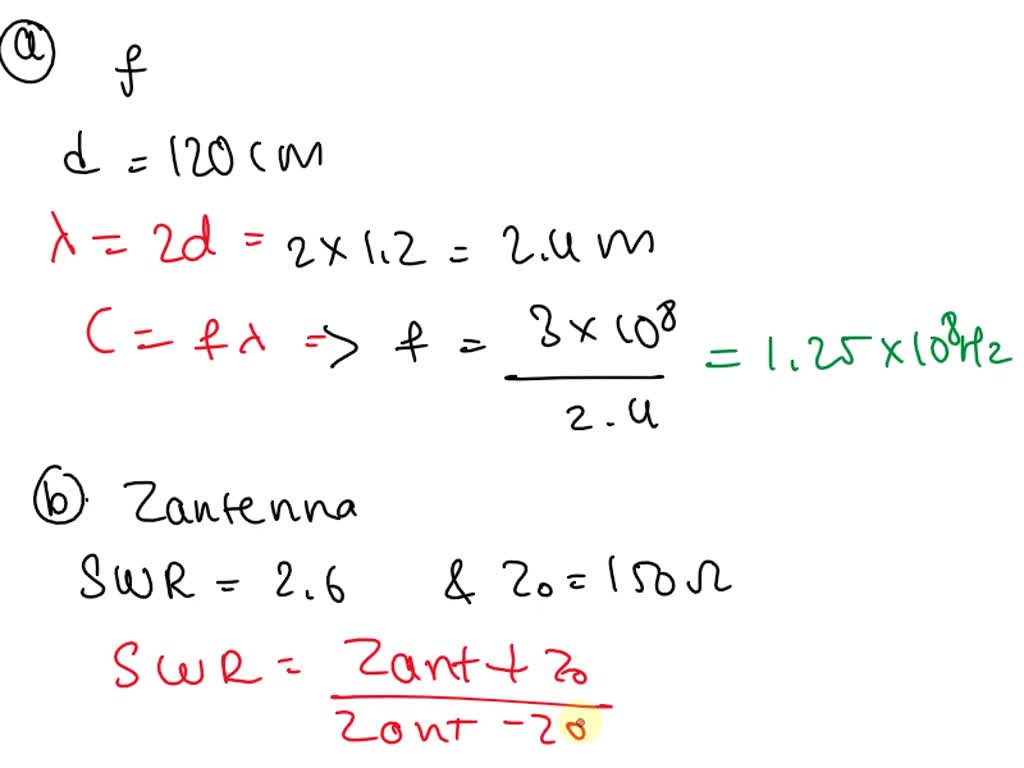 (a) f
d = 120 cm
λ = 2d = 2 × 1.2 = 2.4 m
C = fλ => f = 3 × 10⁸ / 2.4 = 1.25 × 10⁸ Hz
(b). Zantenna
SWR = 2.6 & Z₀ = 150 Ω
SWR = Zant + Z₀ / Zant - Z₀